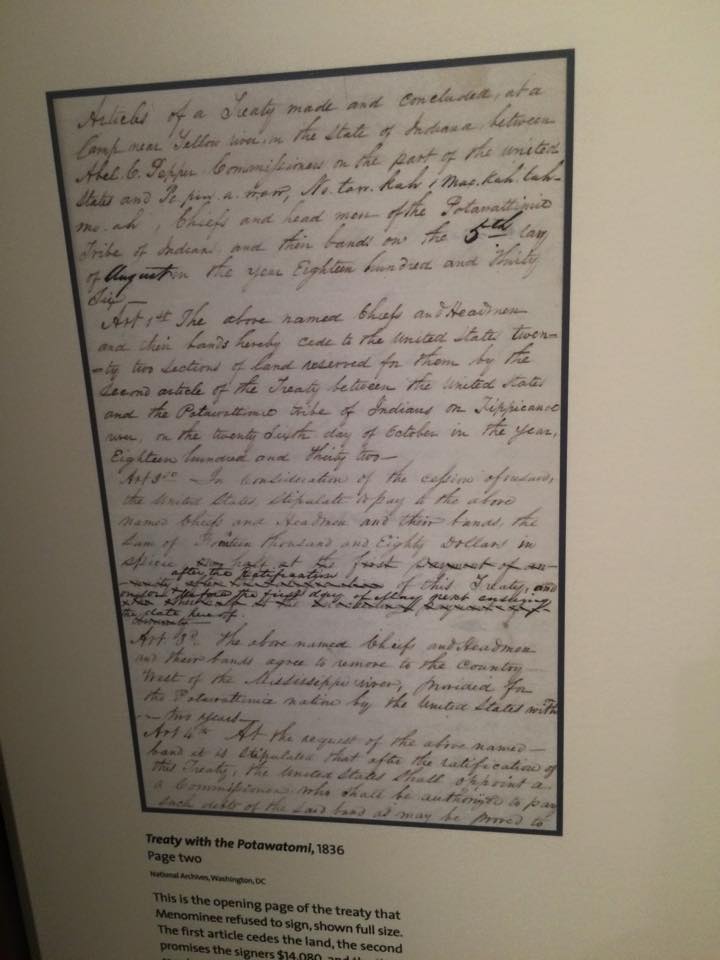 Articles of a Treaty made and concluded, at a
Camp near Yellow river, in the State of Indiana, between
Abel C. Pepper Commissioner on the part of the united
States and Pe, pin, a, waw, No, taw, kah & Mac, kah, tah-
mo-ah, Chiefs and head men of the Potawattimie
Tribe of Indians and their bands on the 5th day
of August in the year Eighteen hundred and thirty
Six—
Art 1st The above named Chiefs and Headmen
and their bands hereby cede to the United States twen-
-ty two Sections of land reserved for them by the
Second article of the Treaty between the United States
and the Potawattimie tribe of Indians on Tippicanoe
river, on the twenty Sixth day of October in the year,
Eighteen hundred and thirty two—
In Consideration of the cession aforesaid,
the United States, stipulate to pay to the above
named Chiefs and Headmen and their bands, the
Sum of Fourteen thousand and Eighty Dollars in
specie at the first payment of an-
after the ratification
of this Treaty, and
on or before the first day of May next ensuing
the date hereof.
Art. 3d. The above named Chiefs and Headmen
and their bands agree to remove to the Country
West of the Mississippi river, provided for
the Potawattimie nation by the United States with-
-in two years—
Art 4th At the request of the above named—
band it is Stipulated that after the ratification of
this Treaty, the United States shall appoint a
a Commissioner who shall be authorized to pay
such debts of the said band as may be proved to
Treaty with the Potawatomi, 1836
Page two
National Archives, Washington, DC
This is the opening page of the treaty that
Menominee refused to sign, shown full size.
The first article cedes the land, the second
promises the signers $14,080, and the